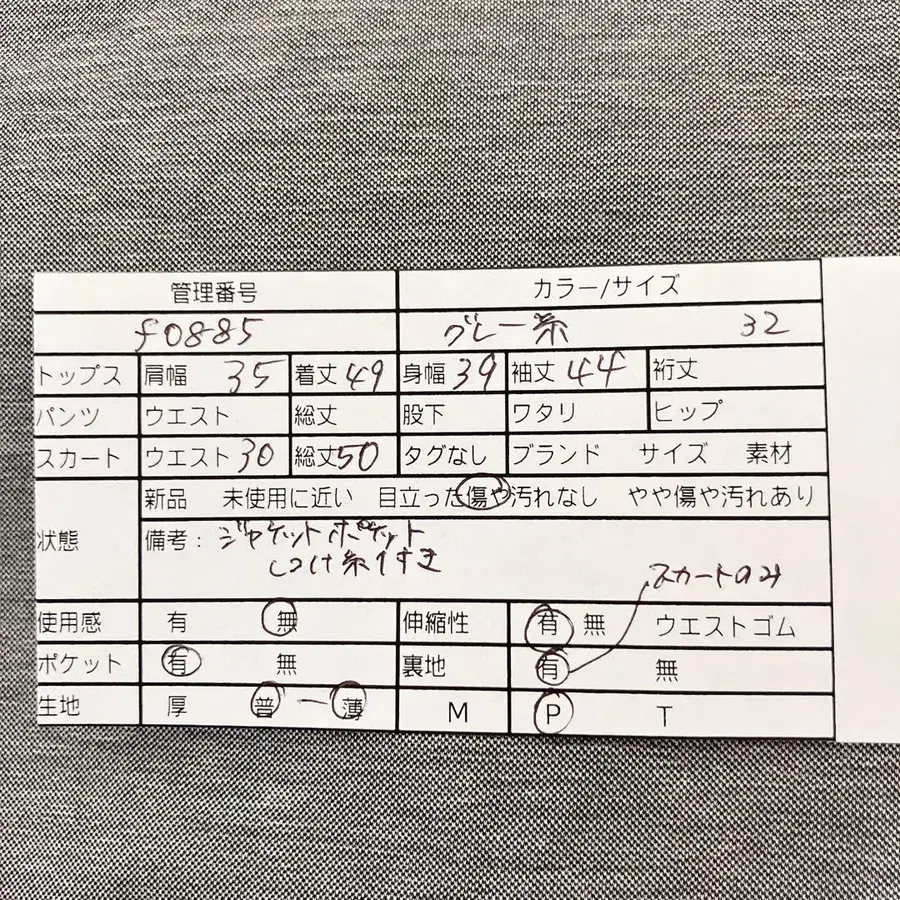 管理番号 カラー/サイズ
f0885 グレー系 32
トップス 肩幅 35 着丈 49 身幅 39 袖丈 44 裄丈
パンツ ウエスト 総丈 股下 ワタリ ヒップ
スカート ウエスト 30 総丈 50 タグなし ブランド サイズ 素材
状態 新品 未使用に近い 目立った傷や汚れなし やや傷や汚れあり
備考: ジャケットポケット
しつけ糸付き
スカートのみ
使用感 有 無 伸縮性 有 無 ウエストゴム
ポケット 有 無 裏地 有 無
生地 厚 普 ー 薄 M P T